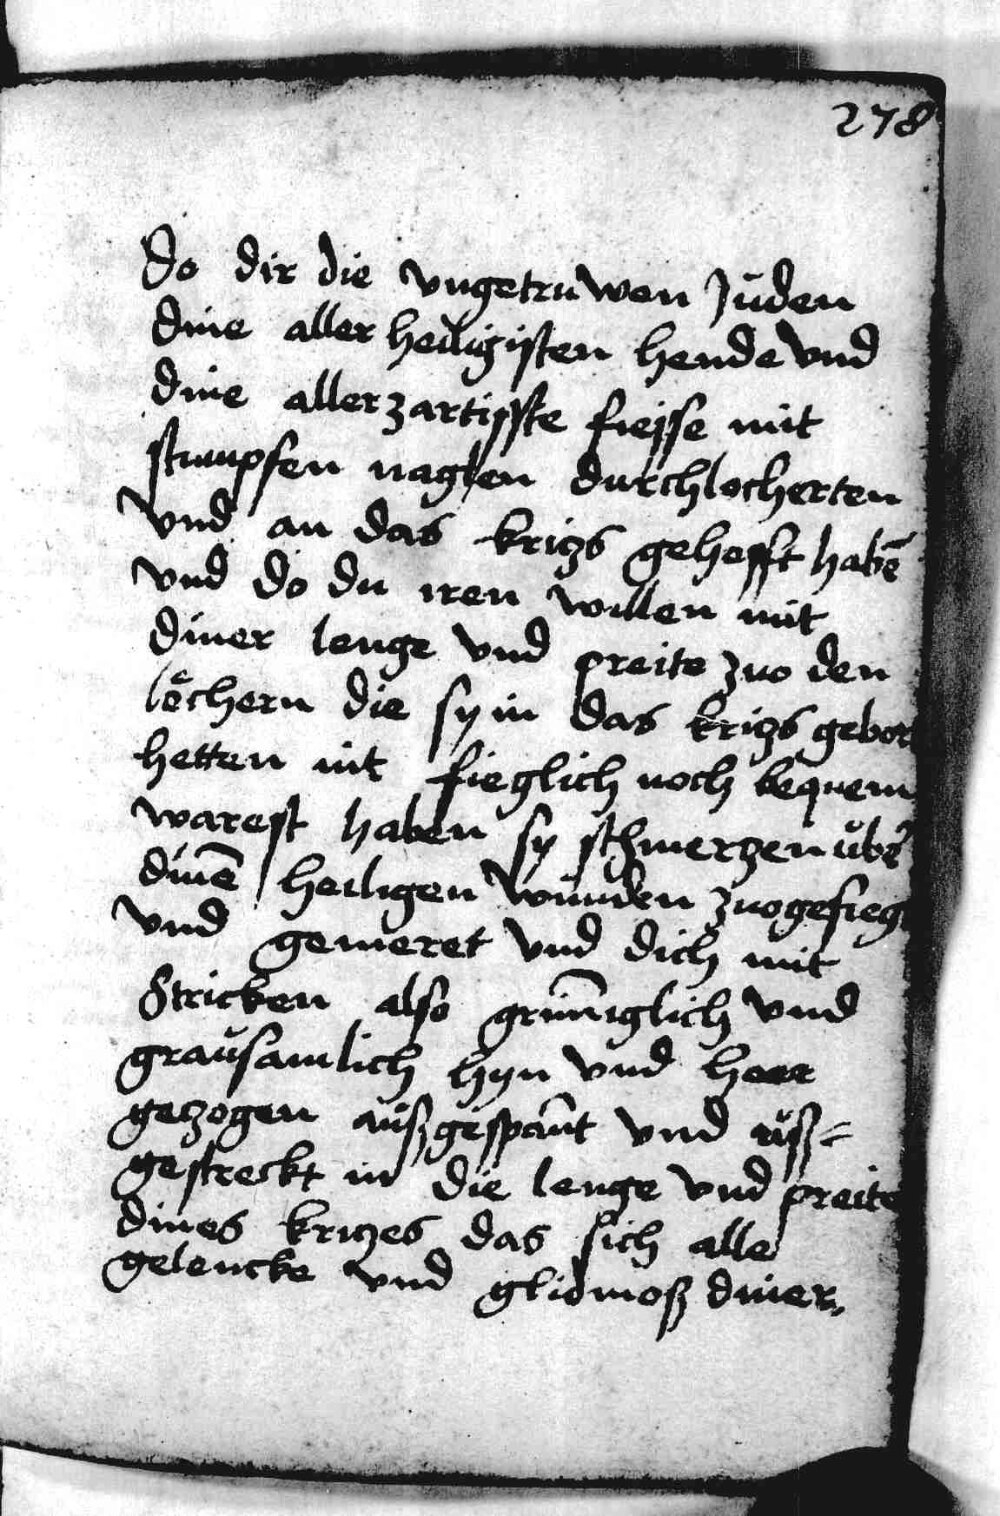 278
Do dir die vngetruwen Juden
dine aller heiligisten hende vnd
dine allerzartisste fiesse mit
stumpfen naglen durchlocherten
vnd an das kritzs gehefft habē
vnd do du iren willen mit
diner lenge vnd preite zuo den
lëchern die sy in das kritzs gebort
hetten nit fieglich noch bequem
warest haben sy schmertzen übē
dinē heiligen wunden zuogefiegt
vnd gemeret vnd dich mit
Stricken also grim̄iglich vnd
grausamlich hyn vnd heer
getzogen aüßgespān̄t vnd aüß=
gestreckt in die lenge vnd preite
dines kritzes das sich alle
gelencke vnd glidmoß diner